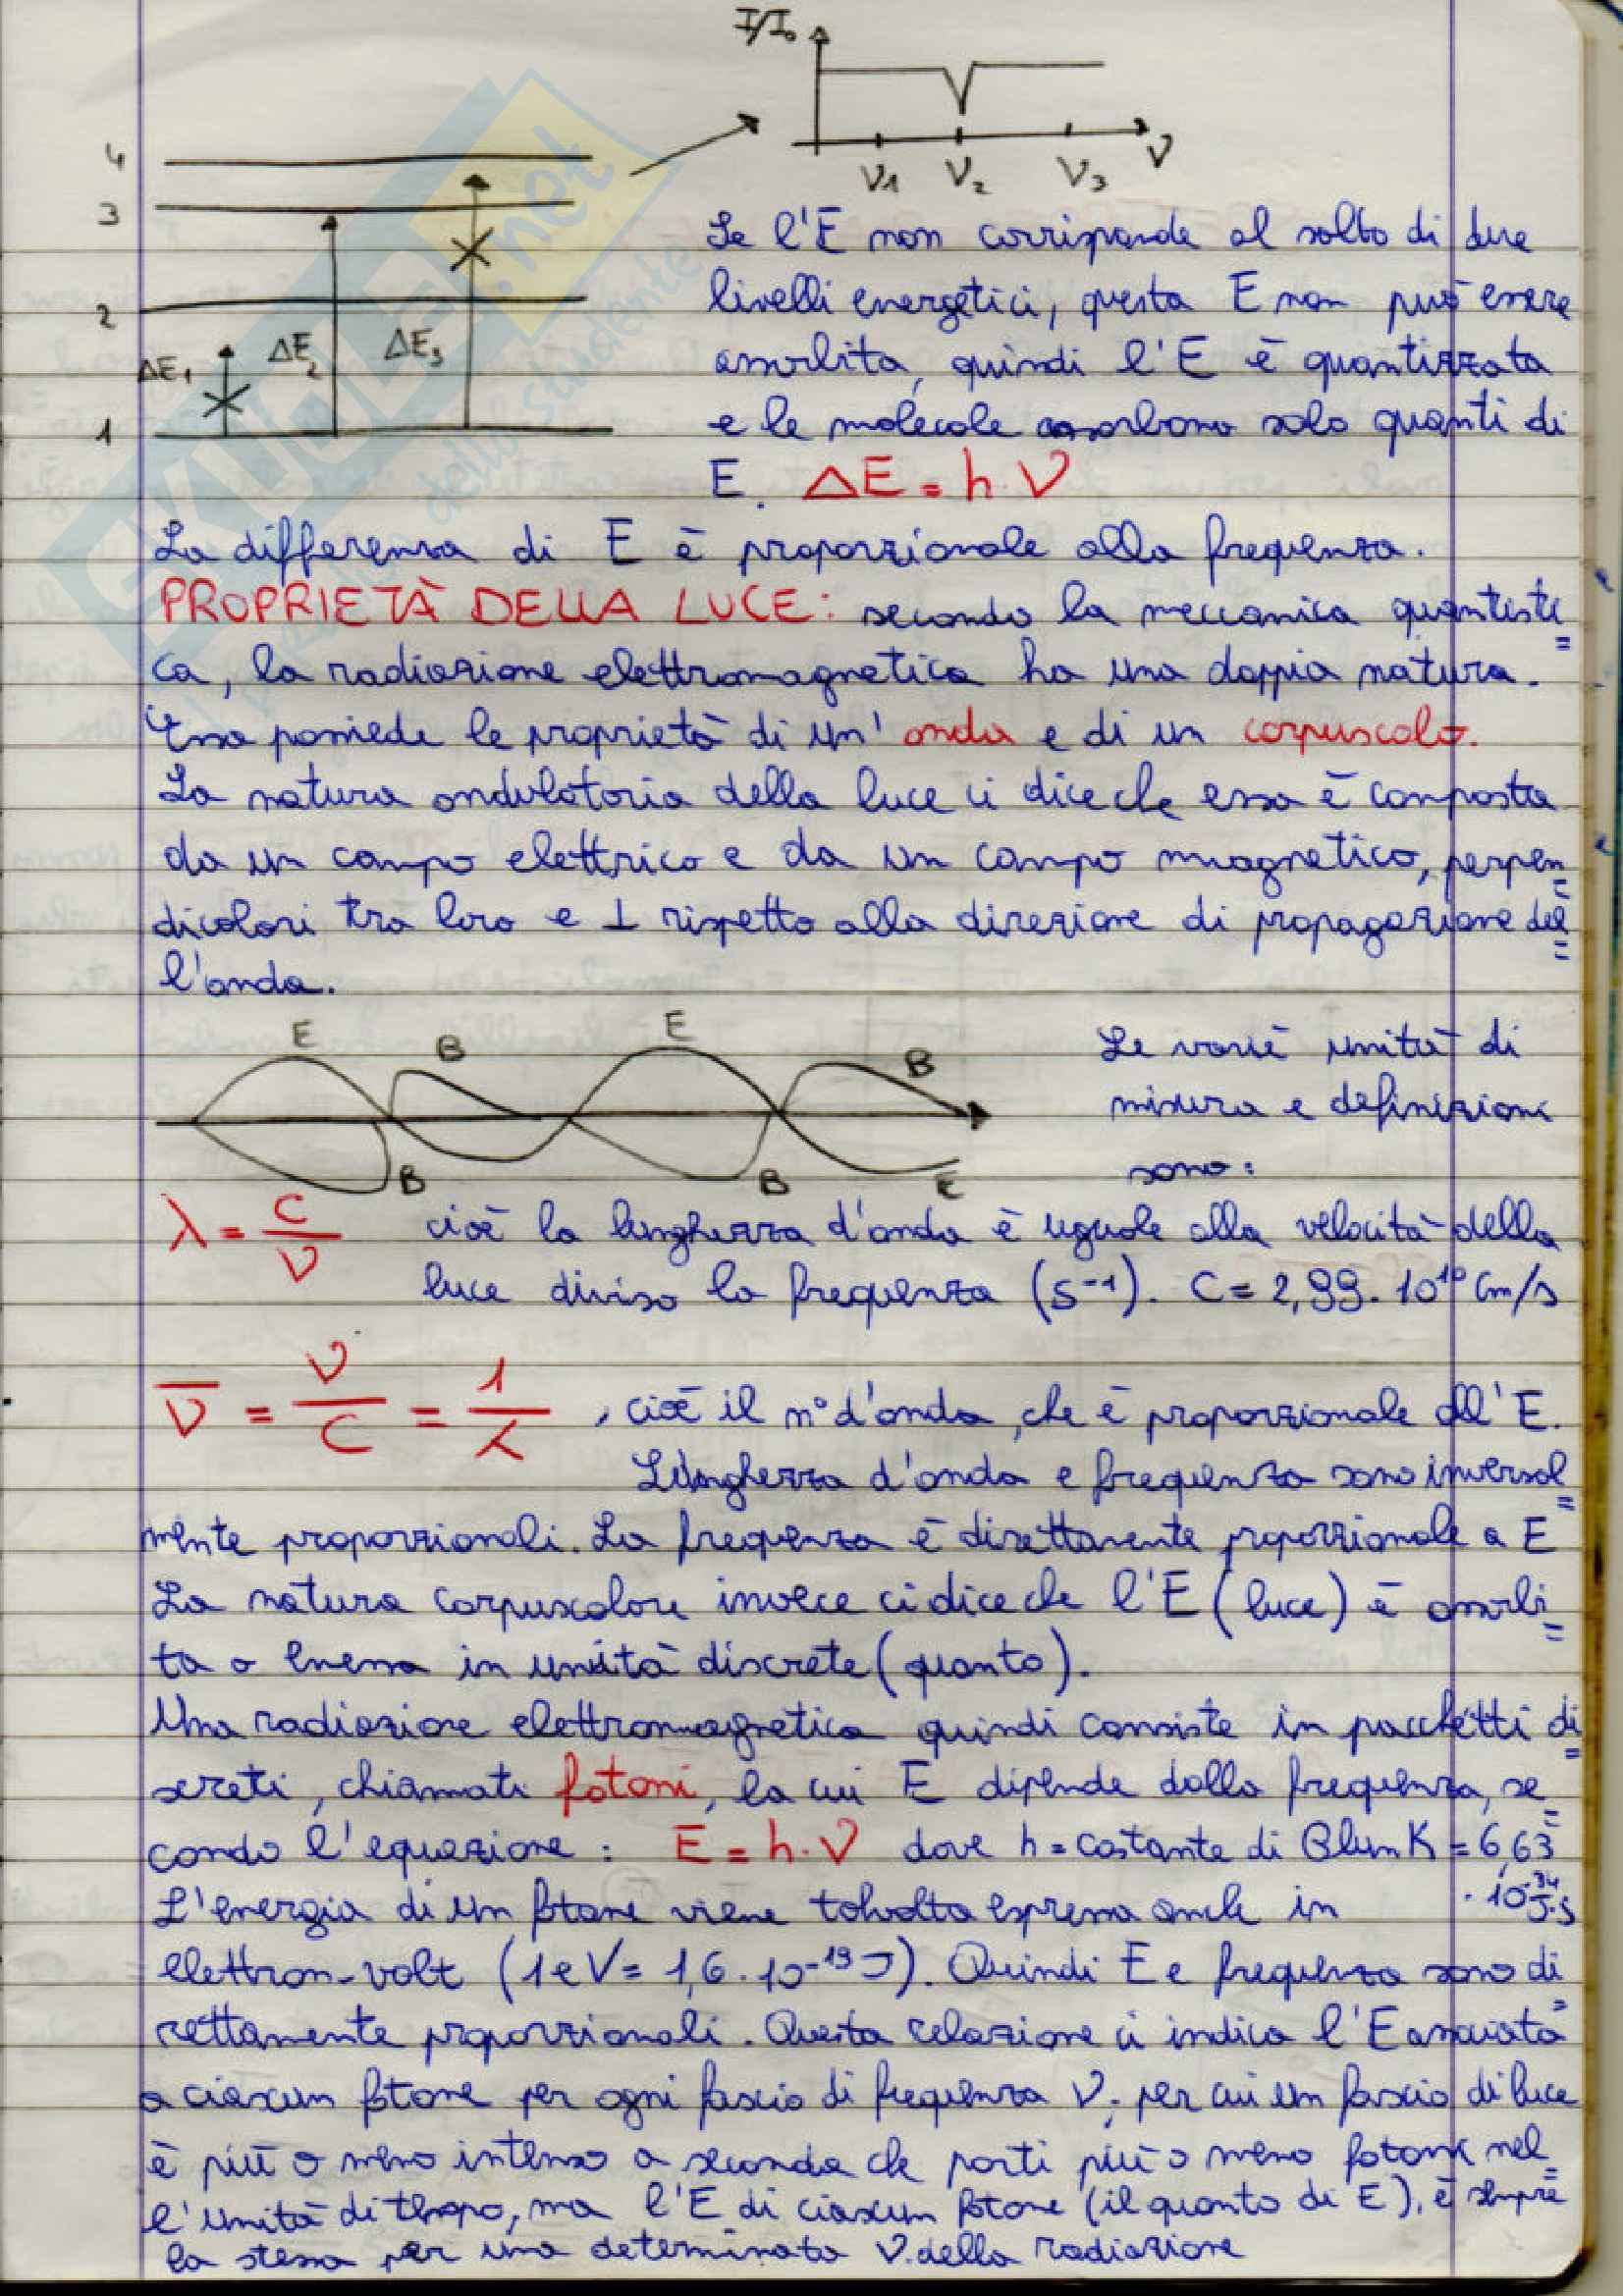 I/I₀
ν1 ν₂ ν₃ ν
4
3
2
1
ΔE₁ ΔE₂ ΔE₃
Se l'E non corrisponde al salto di due
livelli energetici, questa E non può essere
assorbita, quindi l'E è quantizzata
e le molecole assorbono solo quanti di
E. ΔE = h·ν
La differenza di E è proporzionale alla frequenza.
PROPRIETÀ DELLA LUCE: secondo la meccanica quantisti=
ca, la radiazione elettromagnetica ha una doppia natura.
Essa possiede le proprietà di un' onda e di un corpuscolo.
La natura ondulatoria della luce ci dice che essa è composta
da un campo elettrico e da un campo magnetico, perpen=
dicolari tra loro e ⊥ rispetto alla direzione di propagazione del=
l'onda.
E B E B
B B E
Le varie unità di
misura e definizioni
sono:
λ = c/ν cioè la lunghezza d'onda è uguale alla velocità della
luce diviso la frequenza (s⁻¹). C = 2,99·10¹⁰ cm/s
ν̅ = ν/c = 1/λ, cioè il n° d'onda, che è proporzionale all'E.
Lunghezza d'onda e frequenza sono inversal=
mente proporzionali. La frequenza è direttamente proporzionale a E
La natura corpuscolare invece ci dice che l'E (luce) è assorbi=
ta o emessa in unità discrete (quanto).
Una radiazione elettromagnetica quindi consiste in pacchetti di=
screti, chiamati fotoni, la cui E dipende dalla frequenza, se=
condo l'equazione: E = h·ν dove h = costante di Blunk = 6,63
·10⁻³⁴ J·s
L'energia di un fotone viene talvolta espressa anche in
elettron-volt (1eV = 1,6·10⁻¹⁹J). Quindi E e frequenza sono di=
rettamente proporzionali. Questa relazione ci indica l'E associata
a ciascun fotone per ogni fascio di frequenza ν; per cui un fascio di luce
è più o meno intenso a seconda che porti più o meno fotoni nel=
l'unità di tempo, ma l'E di ciascun fotone (il quanto di E), è sempre
la stessa per una determinata ν della radiazione
SKUOLA.net
dello studente